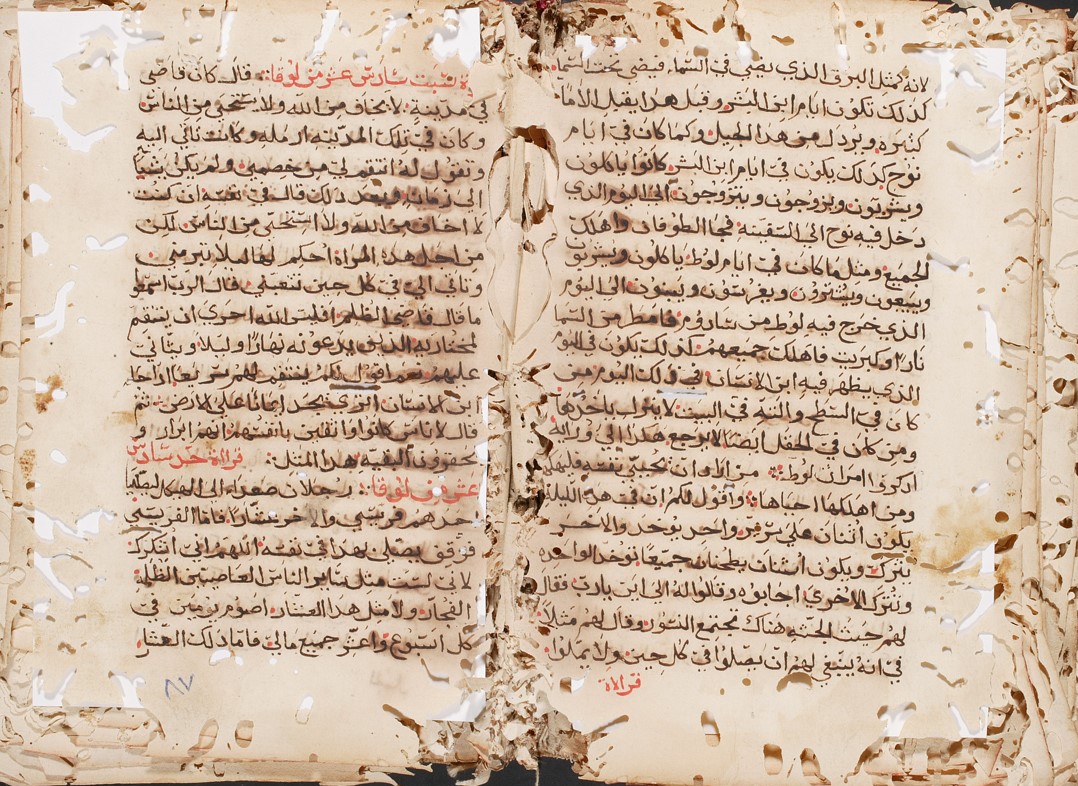 لانه كمثل البرق الذي يضي في السما. فيضي تحت السما.
كذلك تكون ايام ابن البشر. وقبل هدا يقبل الالام
كثيره ويردل من هدا الجيل. وكما كان في ايام
نوح كذلك يكون في ايام ابن البشر. كانوا ياكلون
ويشربون ويزوجون ويتزوجون. الى اليوم الدي
دخل فيه نوح الى السفينه. فجا الطوفان واهلك
الجميع. ومثل ما كان في ايام لوط. ياكلون ويشربون
ويبيعون ويشترون. ويغرسون ويبنون. الى اليوم
الذي خرج فيه لوط من سادوم. فامطر من السما
نارا وكبريت فاهلك جميعهم. كذلك يكون في اليوم
الدي يظهر فيه ابن الانسان. في دلك اليوم من
كان في السطح والته في البيت لا ينزل ياخدها
ومن كان في الحقل ايضا لا يرجع هكدا الى ورايه.
ادكروا امراة لوط. من اراد ان يحيي نفسه فليهلكها
ومن اهلكها احياها. واقول لكم ان في هده الليله
يكون اتنان على سرير واحد يوخد والاخر
يترك. ويكون اتنتان يطحنان جميعا توخد الواحده
وتترك الاخرى. اجابوه وقالوا له الى اين يارب. فقال
لهم حيت الجته هناك تجتمع النسور. وقال لهم متلا.
في انه ينبغي لهم ان يصلوا في كل حين. ولا يملوا.
قراة
ة سبت سادس عشر من لوقا: قال كان قاضي
في مدينة. لا يخاف من الله ولا يستحي من الناس
وكان في تلك المدينه ارمله وكانت تاتي اليه
وتقول له انتقم لي من خصمي. ولم يكن يشا
الى زمان. وبعد دلك قال في نفسه ان كنت
لا اخاف من الله ولا استحي من الناس. لكن
من اجل هده المراة احكم لها ليلا تبرمني
وتاتي الي في كل حين تتعبني. قال الرب اسمعوا
ما قال قاضي الظلم. افليس الله احرى ان ينتقم
لمختاريه الدين يدعونه نهارا وليلا. ويتانى
عليهم. نعم اقول لكم ينتقم لهم سريعا. اداجا
ابن الانسان اترى يجد ايمانا على الارض. تم
قال لاناس كانوا واتقين بانفسهم. انهم ابرار. و
يحقرون البقيه هدا المتل: قراة حد سادس
عشر من لوقا: رجلان صعدا الى الهيكل ليصليا
احدهم فريسي والاخر عشارا. فاما الفريسي
فوقف يصلي بهدا في نفسه. اللهم اني اشكرك
لاني لست متل ساير الناس العاصبين الظلمه
الفجار. ولا متل هدا العشار. اصوم يومين في
كل اسبوع واعشر جميع مالي. فاما دلك العشار.
٨٧